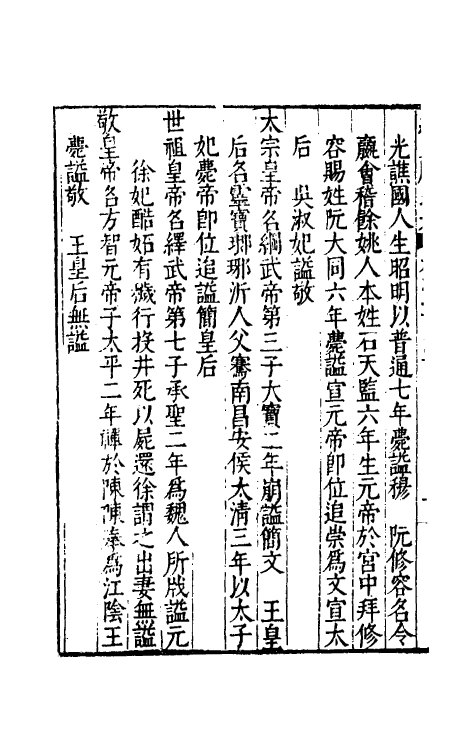 光譙國人生昭明以普通七年薨謚穆　阮修容名令
嬴會稽餘姚人本姓石天監六年生元帝於宮中拜修
容賜姓阮大同六年薨謚宣元帝即位追崇爲文宣太
后　吳淑妃謚敬
太宗皇帝名綱武帝第三子大寶二年崩謚簡文　王皇
后名靈寶琊琊沂人父騫南昌安侯太清三年以太子
妃薨帝卽位追謚簡皇后
世祖皇帝名繹武帝第七子承聖二年爲魏人所戕謚元
徐妃酷妬有穢行投井死以屍還徐謂之出妻無謚
敬皇帝名方智元帝子太平二年禪於陳陳奉爲江陰王
薨謚敬　王皇后無謚